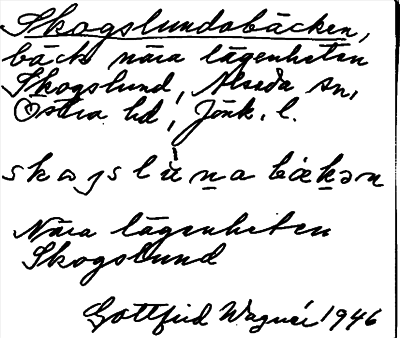 Skogslundabäcken,
bäck nära lägenheten
Skogslund, Alseda sn,
Östra hd, Jönk. l.
Nära lägenheten
Skogslund
Gottfrid Wagnér 1946